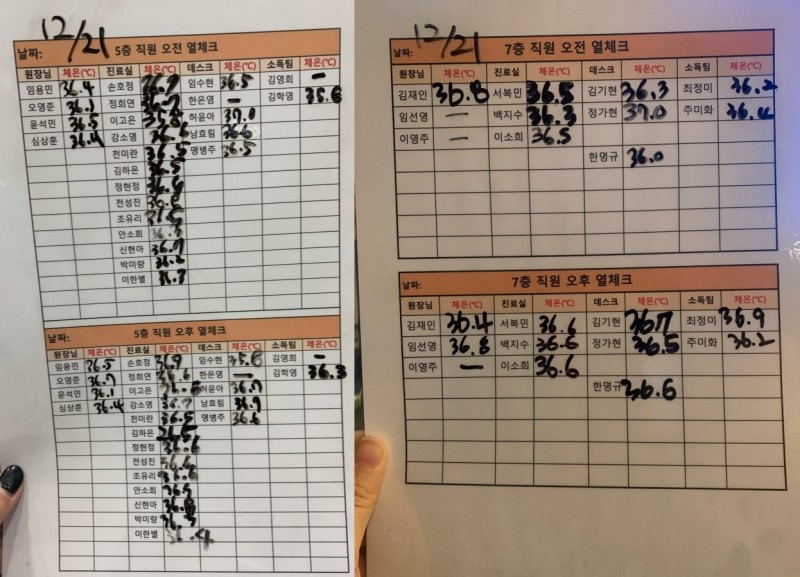 12/21
날짜: 5층 직원 오전 열체크
원장님 체온(℃) 진료실 체온(℃) 데스크 체온(℃) 소독팀 체온(℃)
임용민 36.4 손호정 임수현 36.5 김영희 -
오영준 36.1 정희연 한은영 - 김학영 35.6
윤석민 36.5 이고은 35.8 허윤아 37.0
심상훈 36.4 강소영 36.6 남효림 36.6
천미란 36.5 맹병주 36.5
김하은 36.5
정현정 36.6
전성진 36.6
조유리
안소희 36.3
신현아 36.7
박미량 36.2
이한별 36.3
날짜: 5층 직원 오후 열체크
원장님 체온(℃) 진료실 체온(℃) 데스크 체온(℃) 소독팀 체온(℃)
임용민 36.5 손호정 36.9 임수현 35.8 김영희 -
오영준 36.7 정희연 36.6 한은영 - 김학영 36.3
윤석민 36.1 이고은 36.5 허윤아 36.7
심상훈 36.4 강소영 36.7 남효림 36.9
천미란 36.5 맹병주 36.6
김하은
정현정 36.6
전성진 36.6
조유리 36.6
안소희 36.5
신현아
박미량 36.3
이한별 36.4
12/21
날짜: 7층 직원 오전 열체크
원장님 체온(℃) 진료실 체온(℃) 데스크 체온(℃) 소독팀 체온(℃)
김재인 36.8 서복민 36.5 김기현 36.3 최정미 36.2
임선영 - 백지수 36.3 정가현 37.0 주미화 36.4
이영주 - 이소희 36.5
한명규 36.0
날짜: 7층 직원 오후 열체크
원장님 체온(℃) 진료실 체온(℃) 데스크 체온(℃) 소독팀 체온(℃)
김재인 36.4 서복민 36.6 김기현 36.7 최정미 36.9
임선영 36.8 백지수 36.6 정가현 36.5 주미화 36.2
이영주 - 이소희 36.6
한명규 36.6